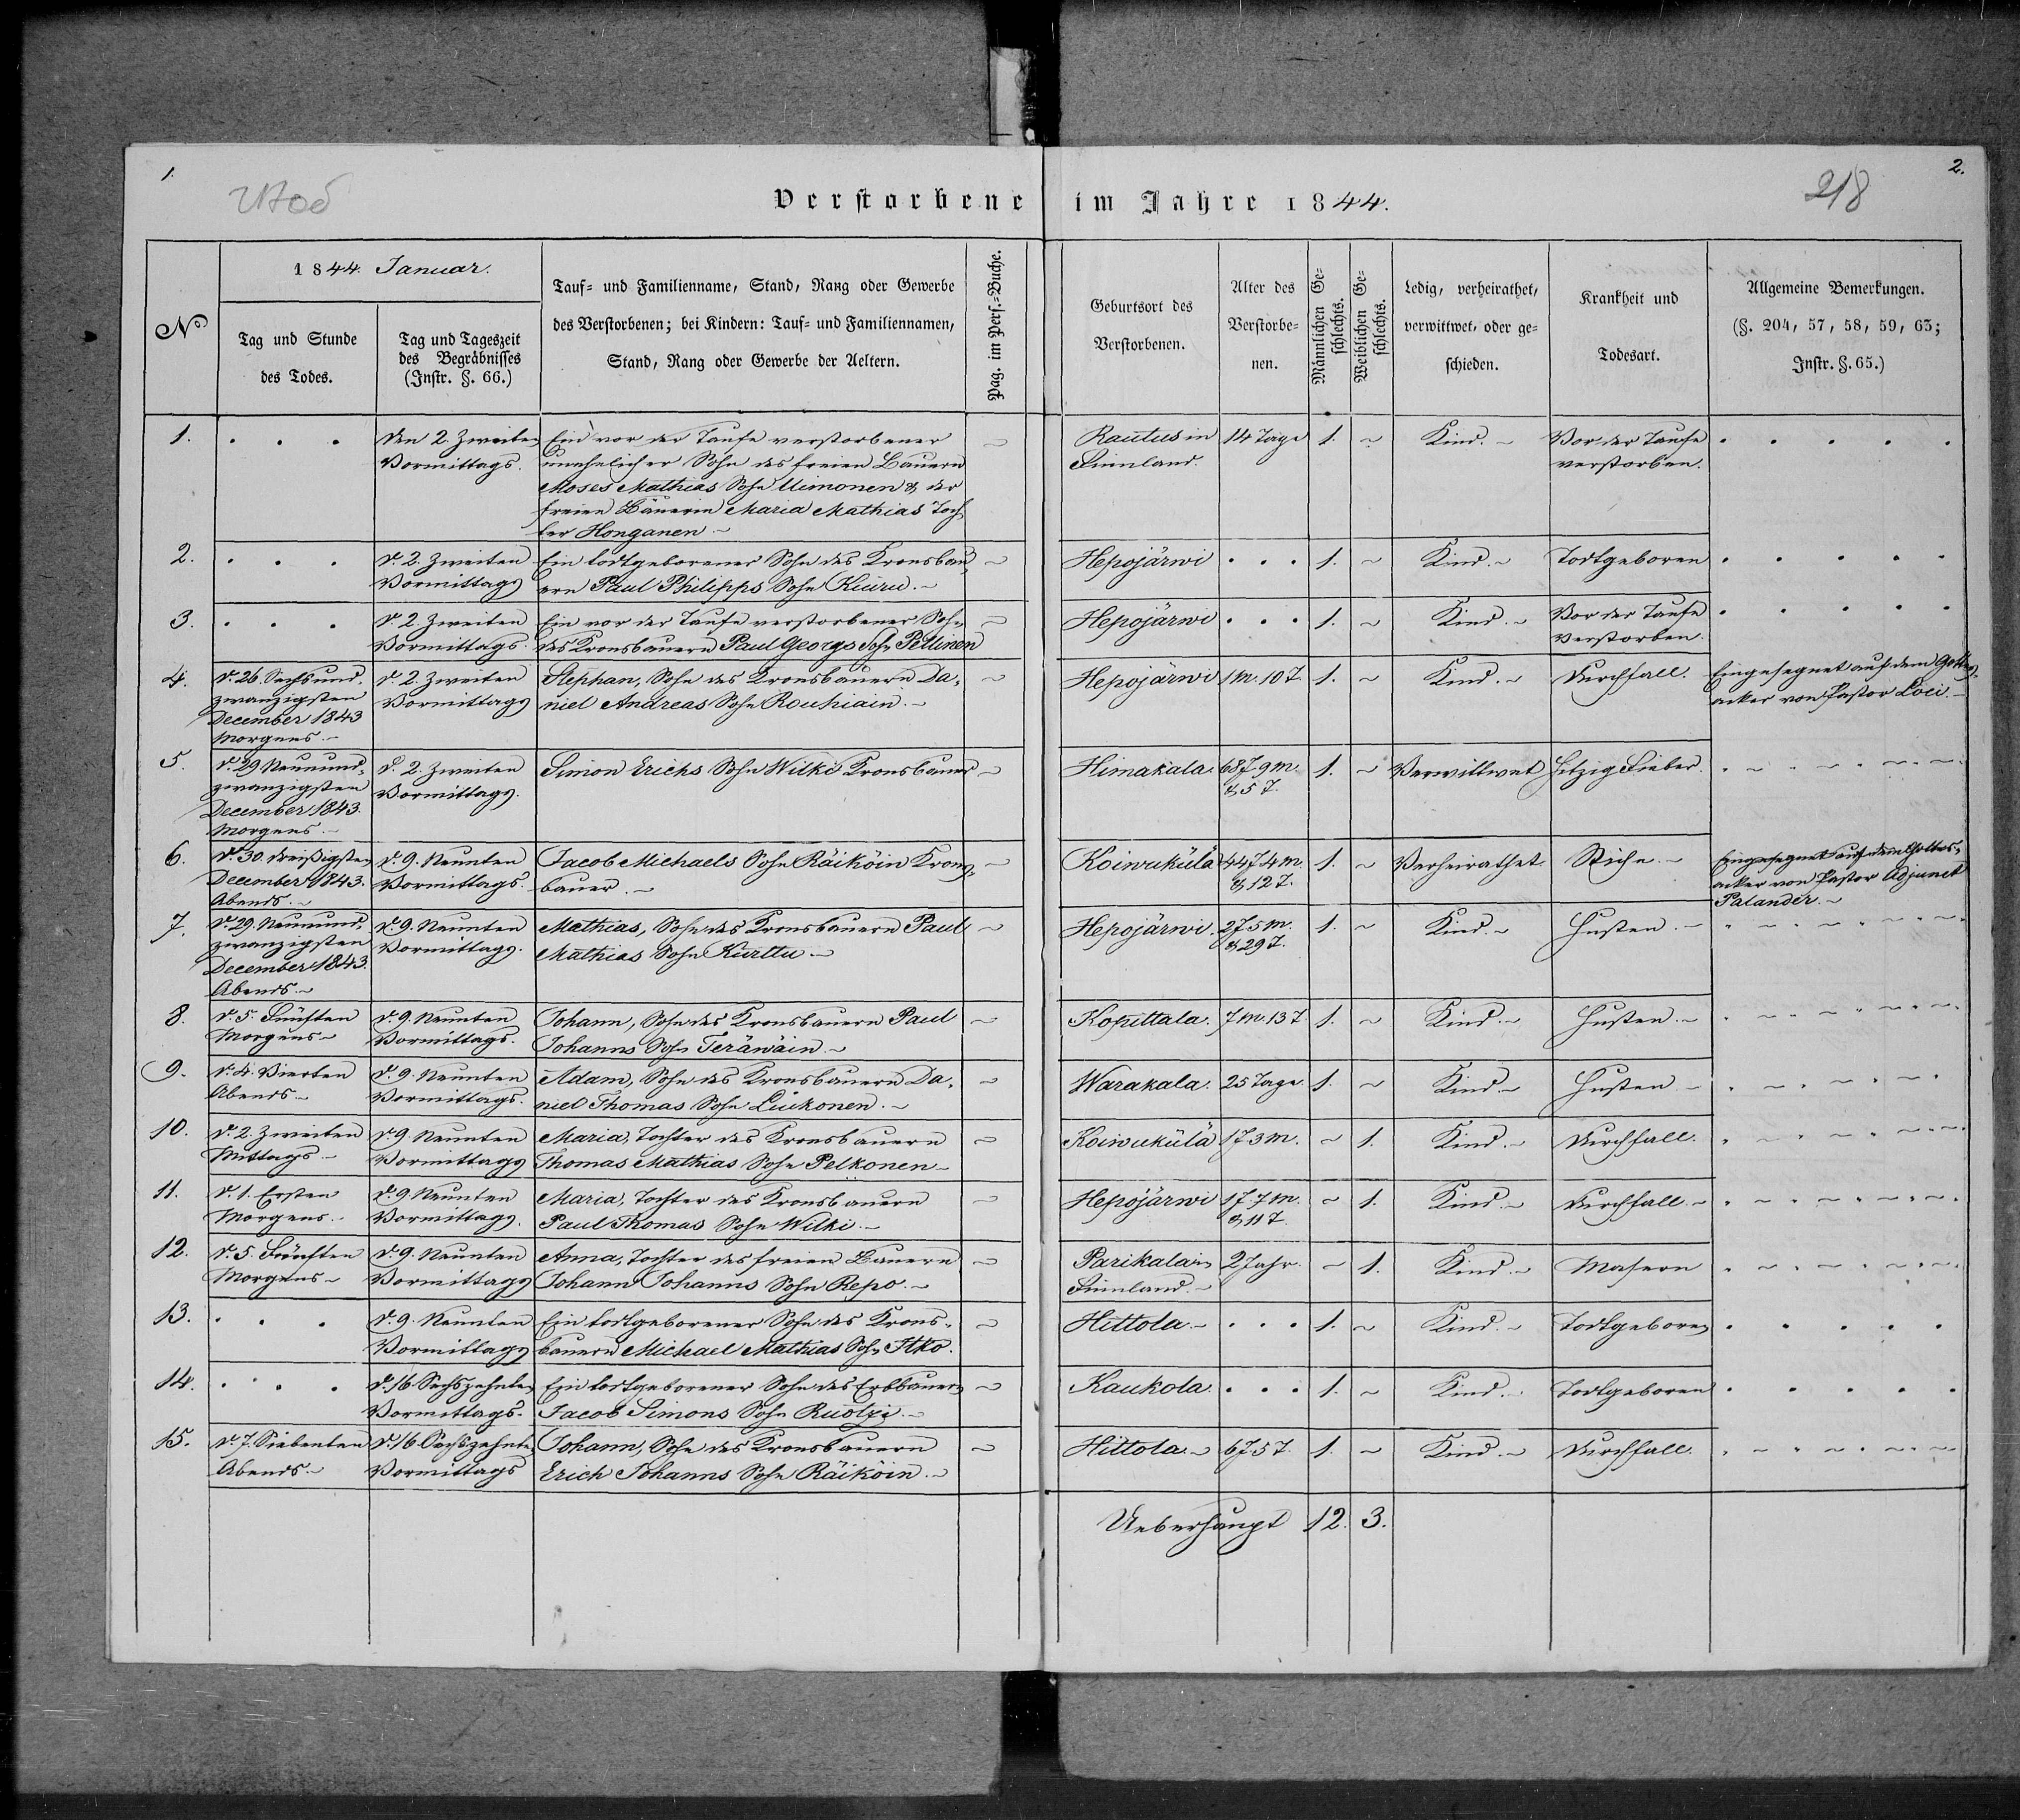 1.
2.
218
Verstorbene im Jahre 1844.
№
1844. Januar.
Tag und Stunde
des Todes.
Tag und Tageszeit
des Begräbnisses
(Instr. §. 66.)
Tauf- und Familienname, Stand, Rang oder Gewerbe
des Verstorbenen; bei Kindern: Tauf- und Familiennamen,
Stand, Rang oder Gewerbe der Aeltern.
Pag. im Pers.-Buche.
Geburtsort des
Verstorbenen.
Alter des
Verstorbe-
nen.
Männlichen Ge-
schlechts.
Weiblichen Ge-
schlechts.
Ledig, verheirathet,
verwittwet, oder ge-
schieden.
Krankheit und
Todesart.
Allgemeine Bemerkungen.
(§. 204, 57, 58, 59, 63;
Instr. §. 65.)
1.
. . .
Den 2. Zweiten
Vormittags.
Ein vor der Taufe verstorbener
unehelicher Sohn des freien Bauern
Moses Mathias Sohn Uimonen & der
freien Bäuerin Maria Mathias Toch
ter Honganen ~
~
Rautus in
Finnland.
14 Tage
1.
~
Kind. ~
Vor der Taufe
verstorben.
. . . . .
2.
. . .
d. 2. Zweiten
Vormittags
Ein todtgeborener Sohn des Kronsbau
ern Paul Philipps Sohn Kiuru. ~
~
Hepojärwi
. . .
1.
~
Kind. ~
Todtgeboren
. . . . .
3.
. . .
d. 2. Zweiten
Vormittags.
Ein vor der Taufe verstorbener Sohn
des Kronsbauern Paul Georgs Sohn Pellinen
~
Hepojärwi
. . .
1.
~
Kind. ~
Vor der Taufe
verstorben.
. . . . .
4.
d. 26. Sechsund-
zwanzigsten
December 1843
Morgens. ~
d. 2. Zweiten
Vormittags
Stephan, Sohn des Kronsbauern Da-
niel Andreas Sohn Rouhiain. ~
~
Hepojärwi
1 M. 10 T.
1.
~
Kind. ~
Durchfall.
Eingesegnet auf dem Gottes-
acker von Pastor Löci. ~
5.
d. 29 Neunund-
zwanzigsten
December 1843.
Morgens. ~
d. 2. Zweiten
Vormittags.
Simon Erichs Sohn Wilki Kronsbauer
~
Himakala.
68 J. 9 M.
& 5 T.
1.
~
Verwittwet
Hitzig Fieber.
6.
d. 30. dreißigsten
December 1843.
Abends. ~
d. 9. Neunten
Vormittags.
Jacob Michaels Sohn Räiköin Krons-
bauer. ~
~
Koiwuküla
44 J. 4 M.
& 12 T.
1.
~
Verheirathet
Stiche. ~
Eingesegnet auf dem Gottes-
acker von Pastor Adjunct
Palander. ~
7.
d. 29. Neunund-
zwanzigsten
December 1843.
Abends. ~
d. 9. Neunten
Vormittags.
Mathias, Sohn des Kronsbauern Paul
Mathias Sohn Kurttu ~
~
Hepojärwi.
2 J. 5 M.
& 29 T.
1.
~
Kind. ~
Husten. ~
8.
d. 5. Fünften
Morgens ~
d. 9. Neunten
Vormittags.
Johann, Sohn des Kronsbauern Paul
Johanns Sohn Teräwäin. ~
~
Koputtala.
7 M. 13 T.
1.
~
Kind. ~
Husten. ~
9.
d. 4. Vierten
Abends ~
d. 9. Neunten
Vormittags.
Adam, Sohn des Kronsbauern Da-
niel Thomas Sohn Liukonen. ~
~
Warakala.
25 Tage.
1.
~
Kind ~
Husten ~
10.
d. 2. Zweiten
Mittags. ~
d. 9. Neunten
Vormittags
Maria, Tochter des Kronsbauern
Thomas Mathias Sohn Pelkonen ~
~
Koiwuküla
1 J. 3 M.
~
1.
Kind. ~
Durchfall.
11.
d. 1. Ersten
Morgens. ~
d. 9. Neunten
Vormittags.
Maria, Tochter des Kronsbauern
Paul Thomas Sohn Wilki. ~
~
Hepojärwi
1 J. 7 M.
& 11 T.
~
1.
Kind ~
Durchfall. ~
12.
d. 5. Fünften
Morgens ~
d. 9. Neunten
Vormittags
Anna, Tochter des freien Bauern
Johann Johanns Sohn Repo. ~
~
Parikala in
Finnland. ~
2 Jahr.
~
1.
Kind. ~
Masern
13.
. . .
d. 9. Neunten
Vormittags
Ein todtgeborener Sohn des Krons-
bauern Michael Mathias Sohn Itko.
~
Hittola ~
. . .
1.
~
Kind. ~
Todtgeboren
. . . . .
14.
. . .
d. 16 Sechszehnten
Vormittags.
Ein todtgeborener Sohn des Erbbauern
Jacob Simons Sohn Ruotzi. ~
~
Kaukola.
. . .
1.
~
Kind.
Todtgeboren
. . . . .
15.
d. 7. Siebenten
Abends. ~
d. 16. Sechszehnten
Vormittags
Johann, Sohn des Kronsbauern
Erich Johanns Sohn Räiköin. ~
~
Hittola. ~
6 J. 5 T.
1.
~
Kind ~
Durchfall.
Ueberhaupt 12. 3.